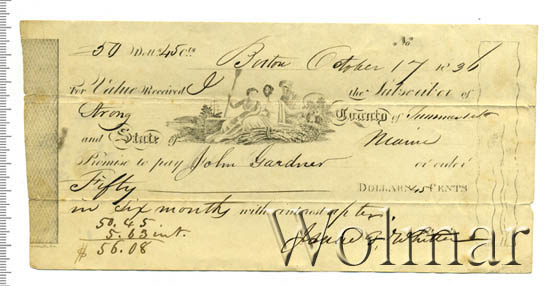 50 Doll. 45 Cts No
Boston October 17 1836
For Value Received I the Subscriber of
Strong County of
and State of Maine
Promise to pay John Gardner or order
Fifty DOLLARS 45 CENTS
in six months with interest after
50.45
5.63 int.
$56.08
Wolmar